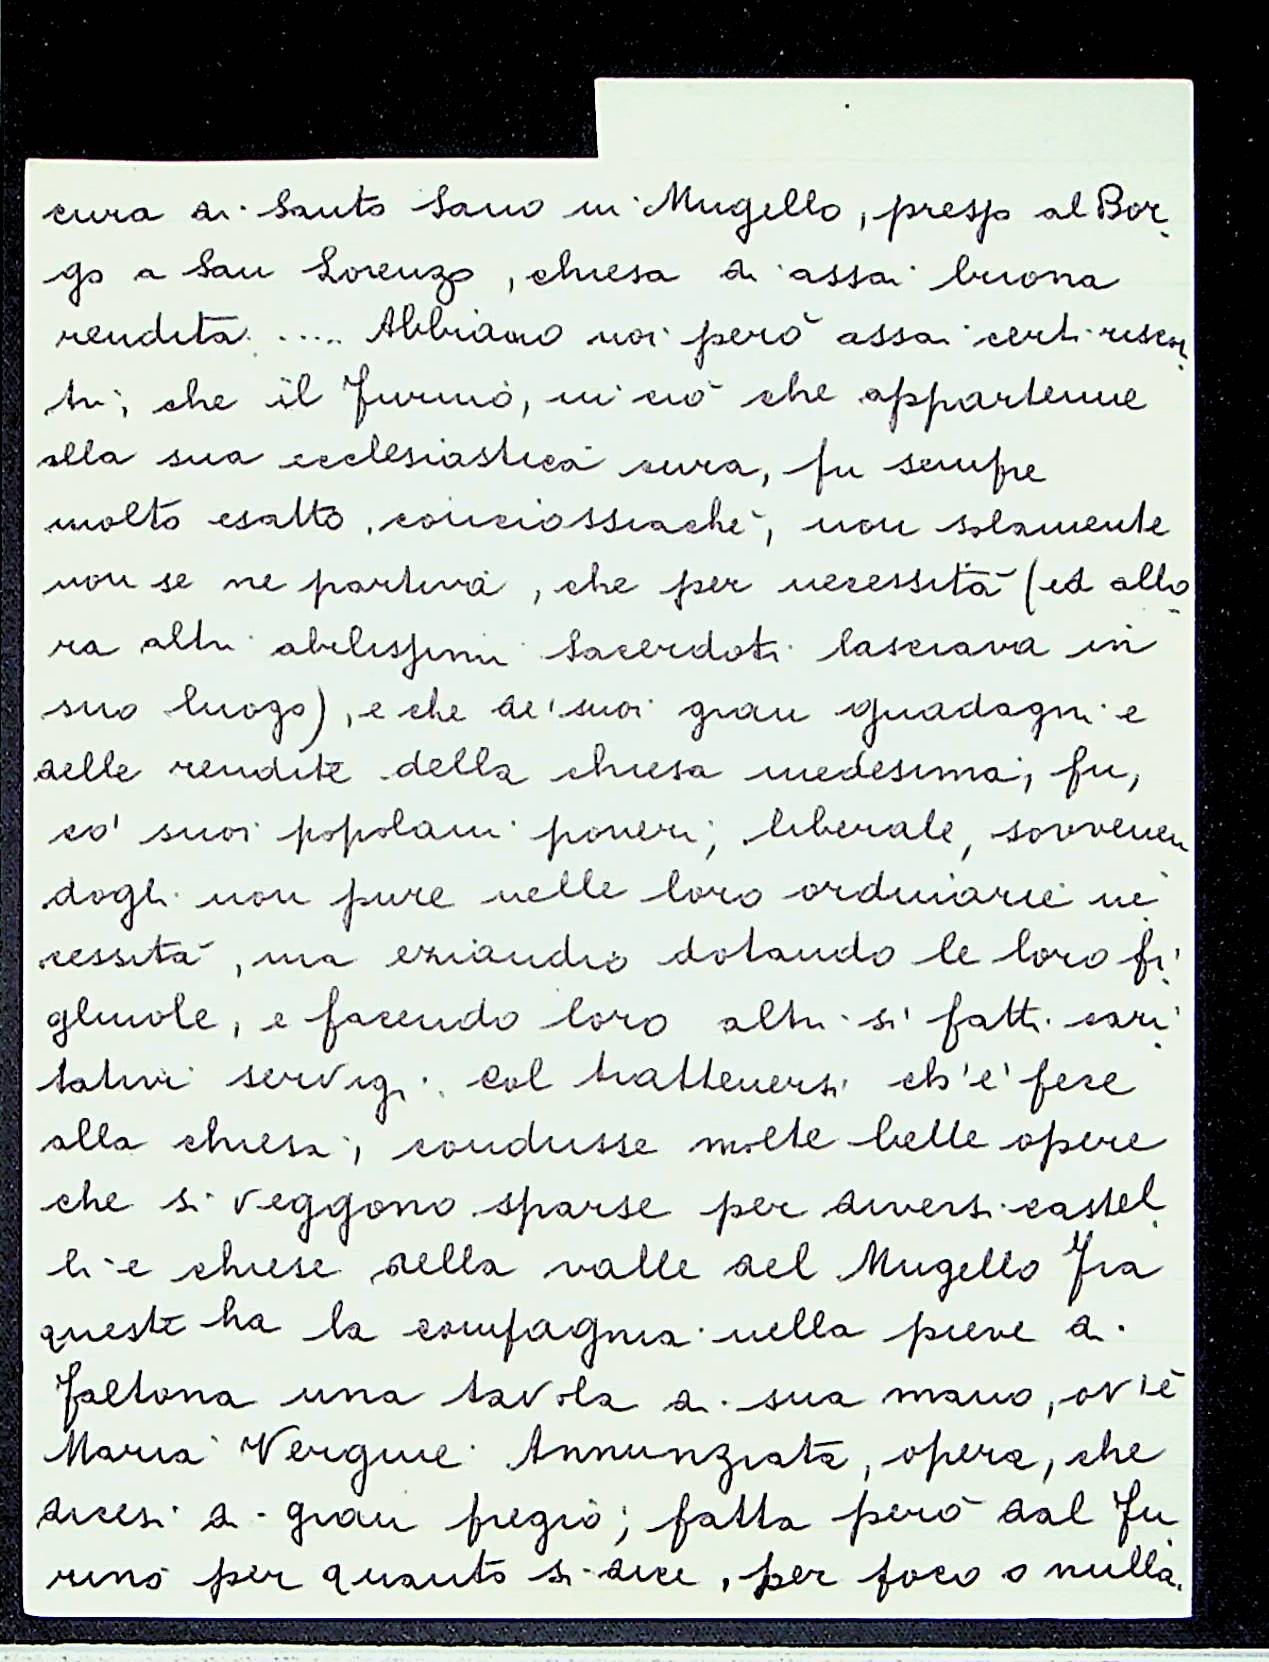 cura di Santo Sano in Mugello, presso al Bor-
go a San Lorenzo, chiesa di assai buona
rendita ..... Abbiamo noi però assai certi riscon-
tri, che il Furino, in ciò che appartenne
alla sua ecclesiastica cura, fu sempre
molto esatto, conciossiachè, non solamente
non se ne partiva, che per necessità (ed allo-
ra altri abilissimi Sacerdoti lasciava in
suo luogo), e che de' suoi gran guadagni e
delle rendite della chiesa medesima, fu,
co' suoi popolani poveri, liberale, sovvenen-
dogli non pure nelle loro ordinarie ne-
cessità, ma eziandio dotando le loro fi-
gliuole, e facendo loro altri sì fatti cari-
tativi servigi. Col trattenersi ch'e' fece
alla chiesa, condusse molte belle opere
che si veggono sparse per diversi castel-
li e chiese della valle del Mugello Fra
queste ha la compagnia nella pieve di
Faltona una tavola di sua mano, ov'è
Maria Vergine Annunziata, opera, che
dicesi di gran pregio; fatta però dal Fu-
rino per quanto si dice, per poco o nulla.